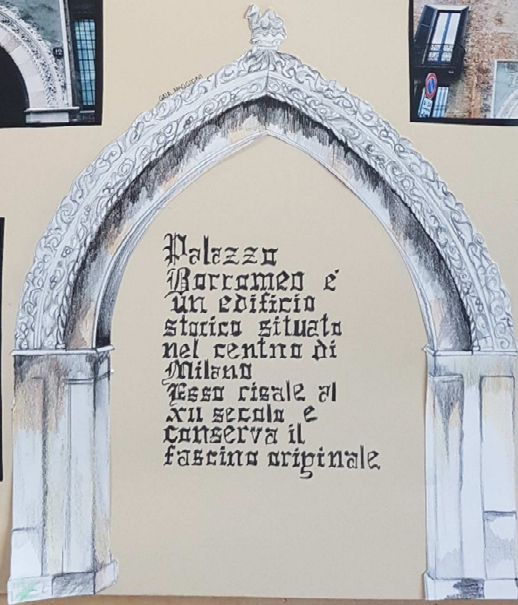 Palazzo
Borromeo é
un edificio
storico situato
nel centro di
Milano
Esso risale al
xii secolo e
conserva il
fascino originale